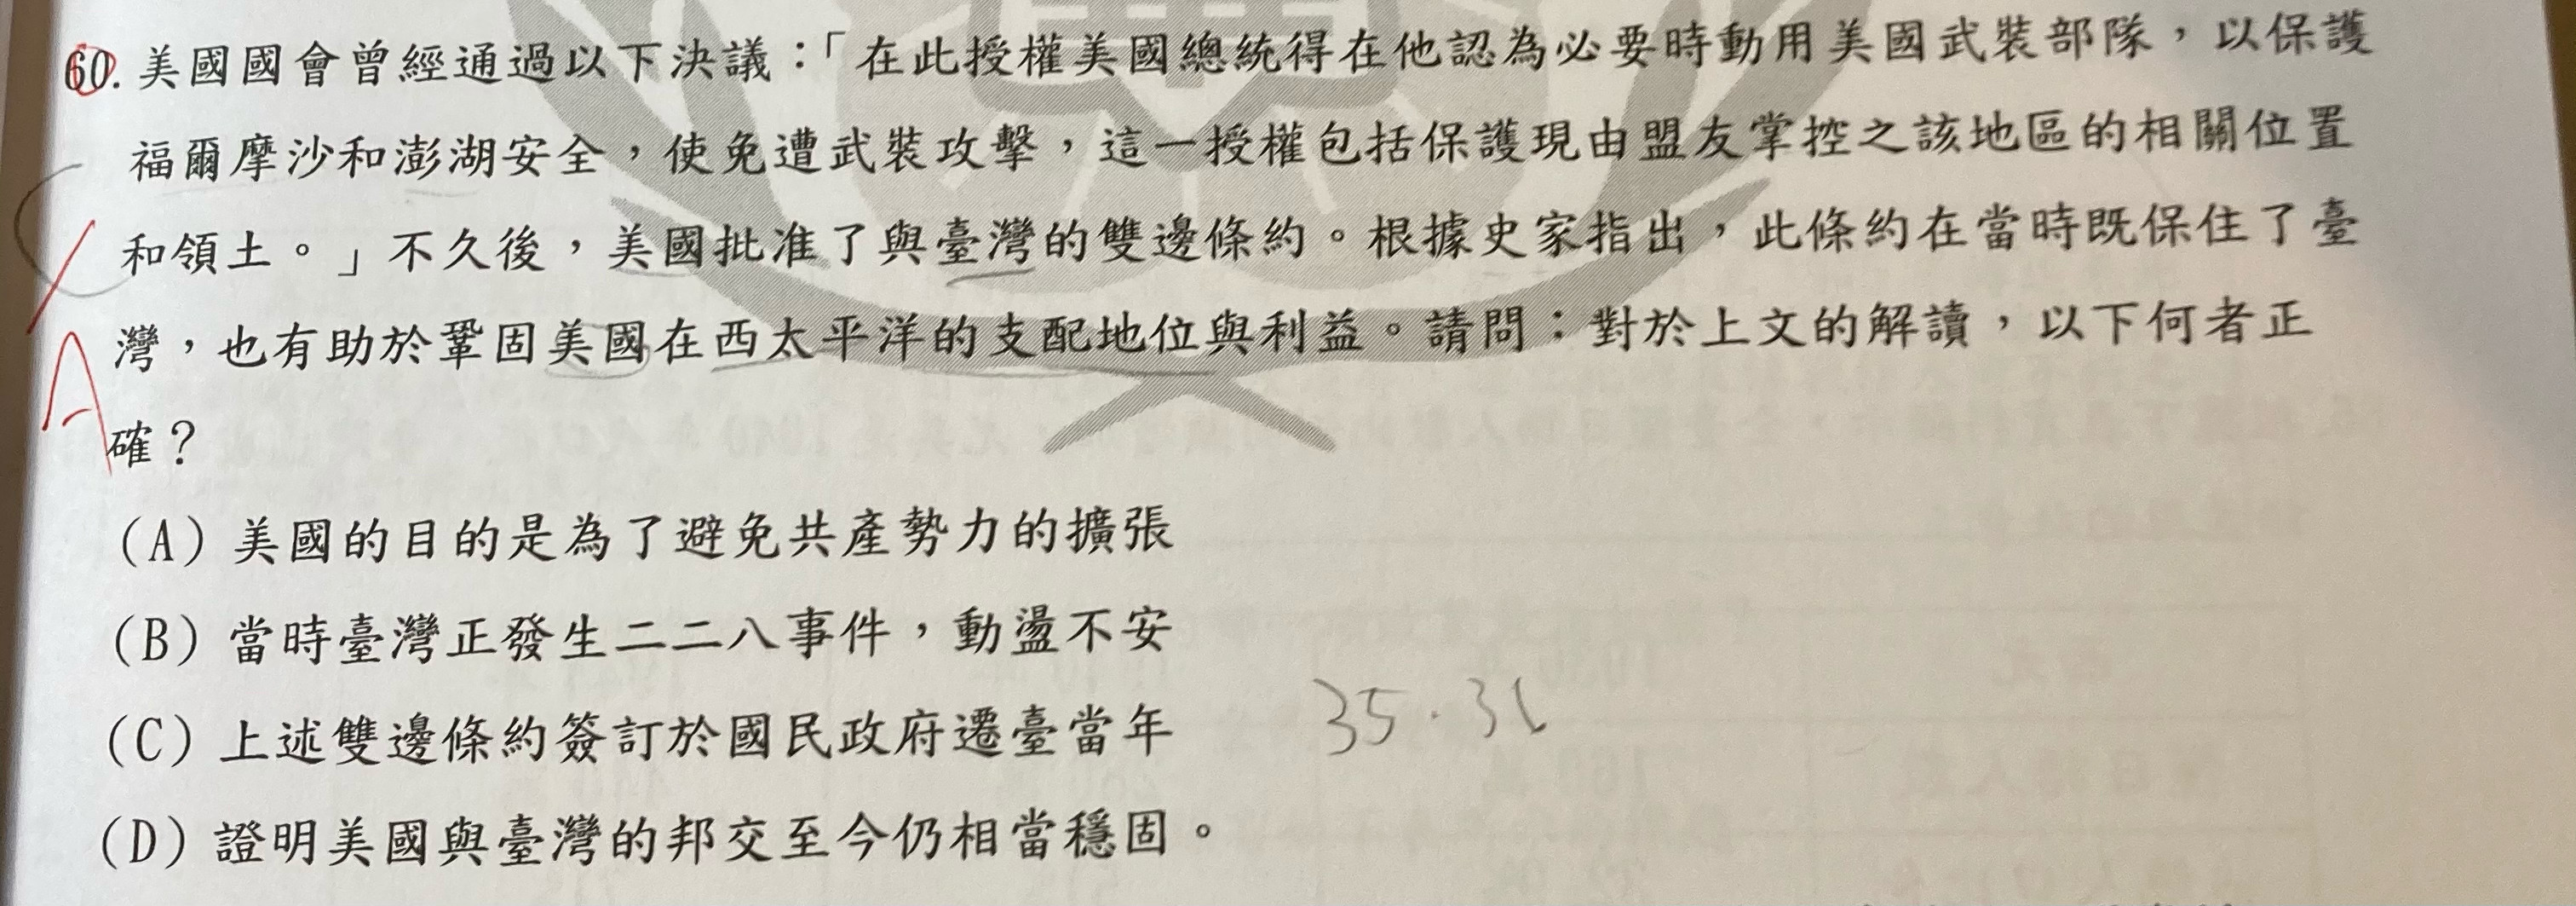 60. 美國國會曾經通過以下決議：「在此授權美國總統得在他認為必要時動用美國武裝部隊，以保護
福爾摩沙和澎湖安全，使免遭武裝攻擊，這一授權包括保護現由盟友掌控之該地區的相關位置
和領土。」不久後，美國批准了與臺灣的雙邊條約。根據史家指出，此條約在當時既保住了臺
灣，也有助於鞏固美國在西太平洋的支配地位與利益。請問：對於上文的解讀，以下何者正
A
確？
(A) 美國的目的是為了避免共產勢力的擴張
(B) 當時臺灣正發生二二八事件，動盪不安
(C) 上述雙邊條約簽訂於國民政府遷臺當年
(D) 證明美國與臺灣的邦交至今仍相當穩固。